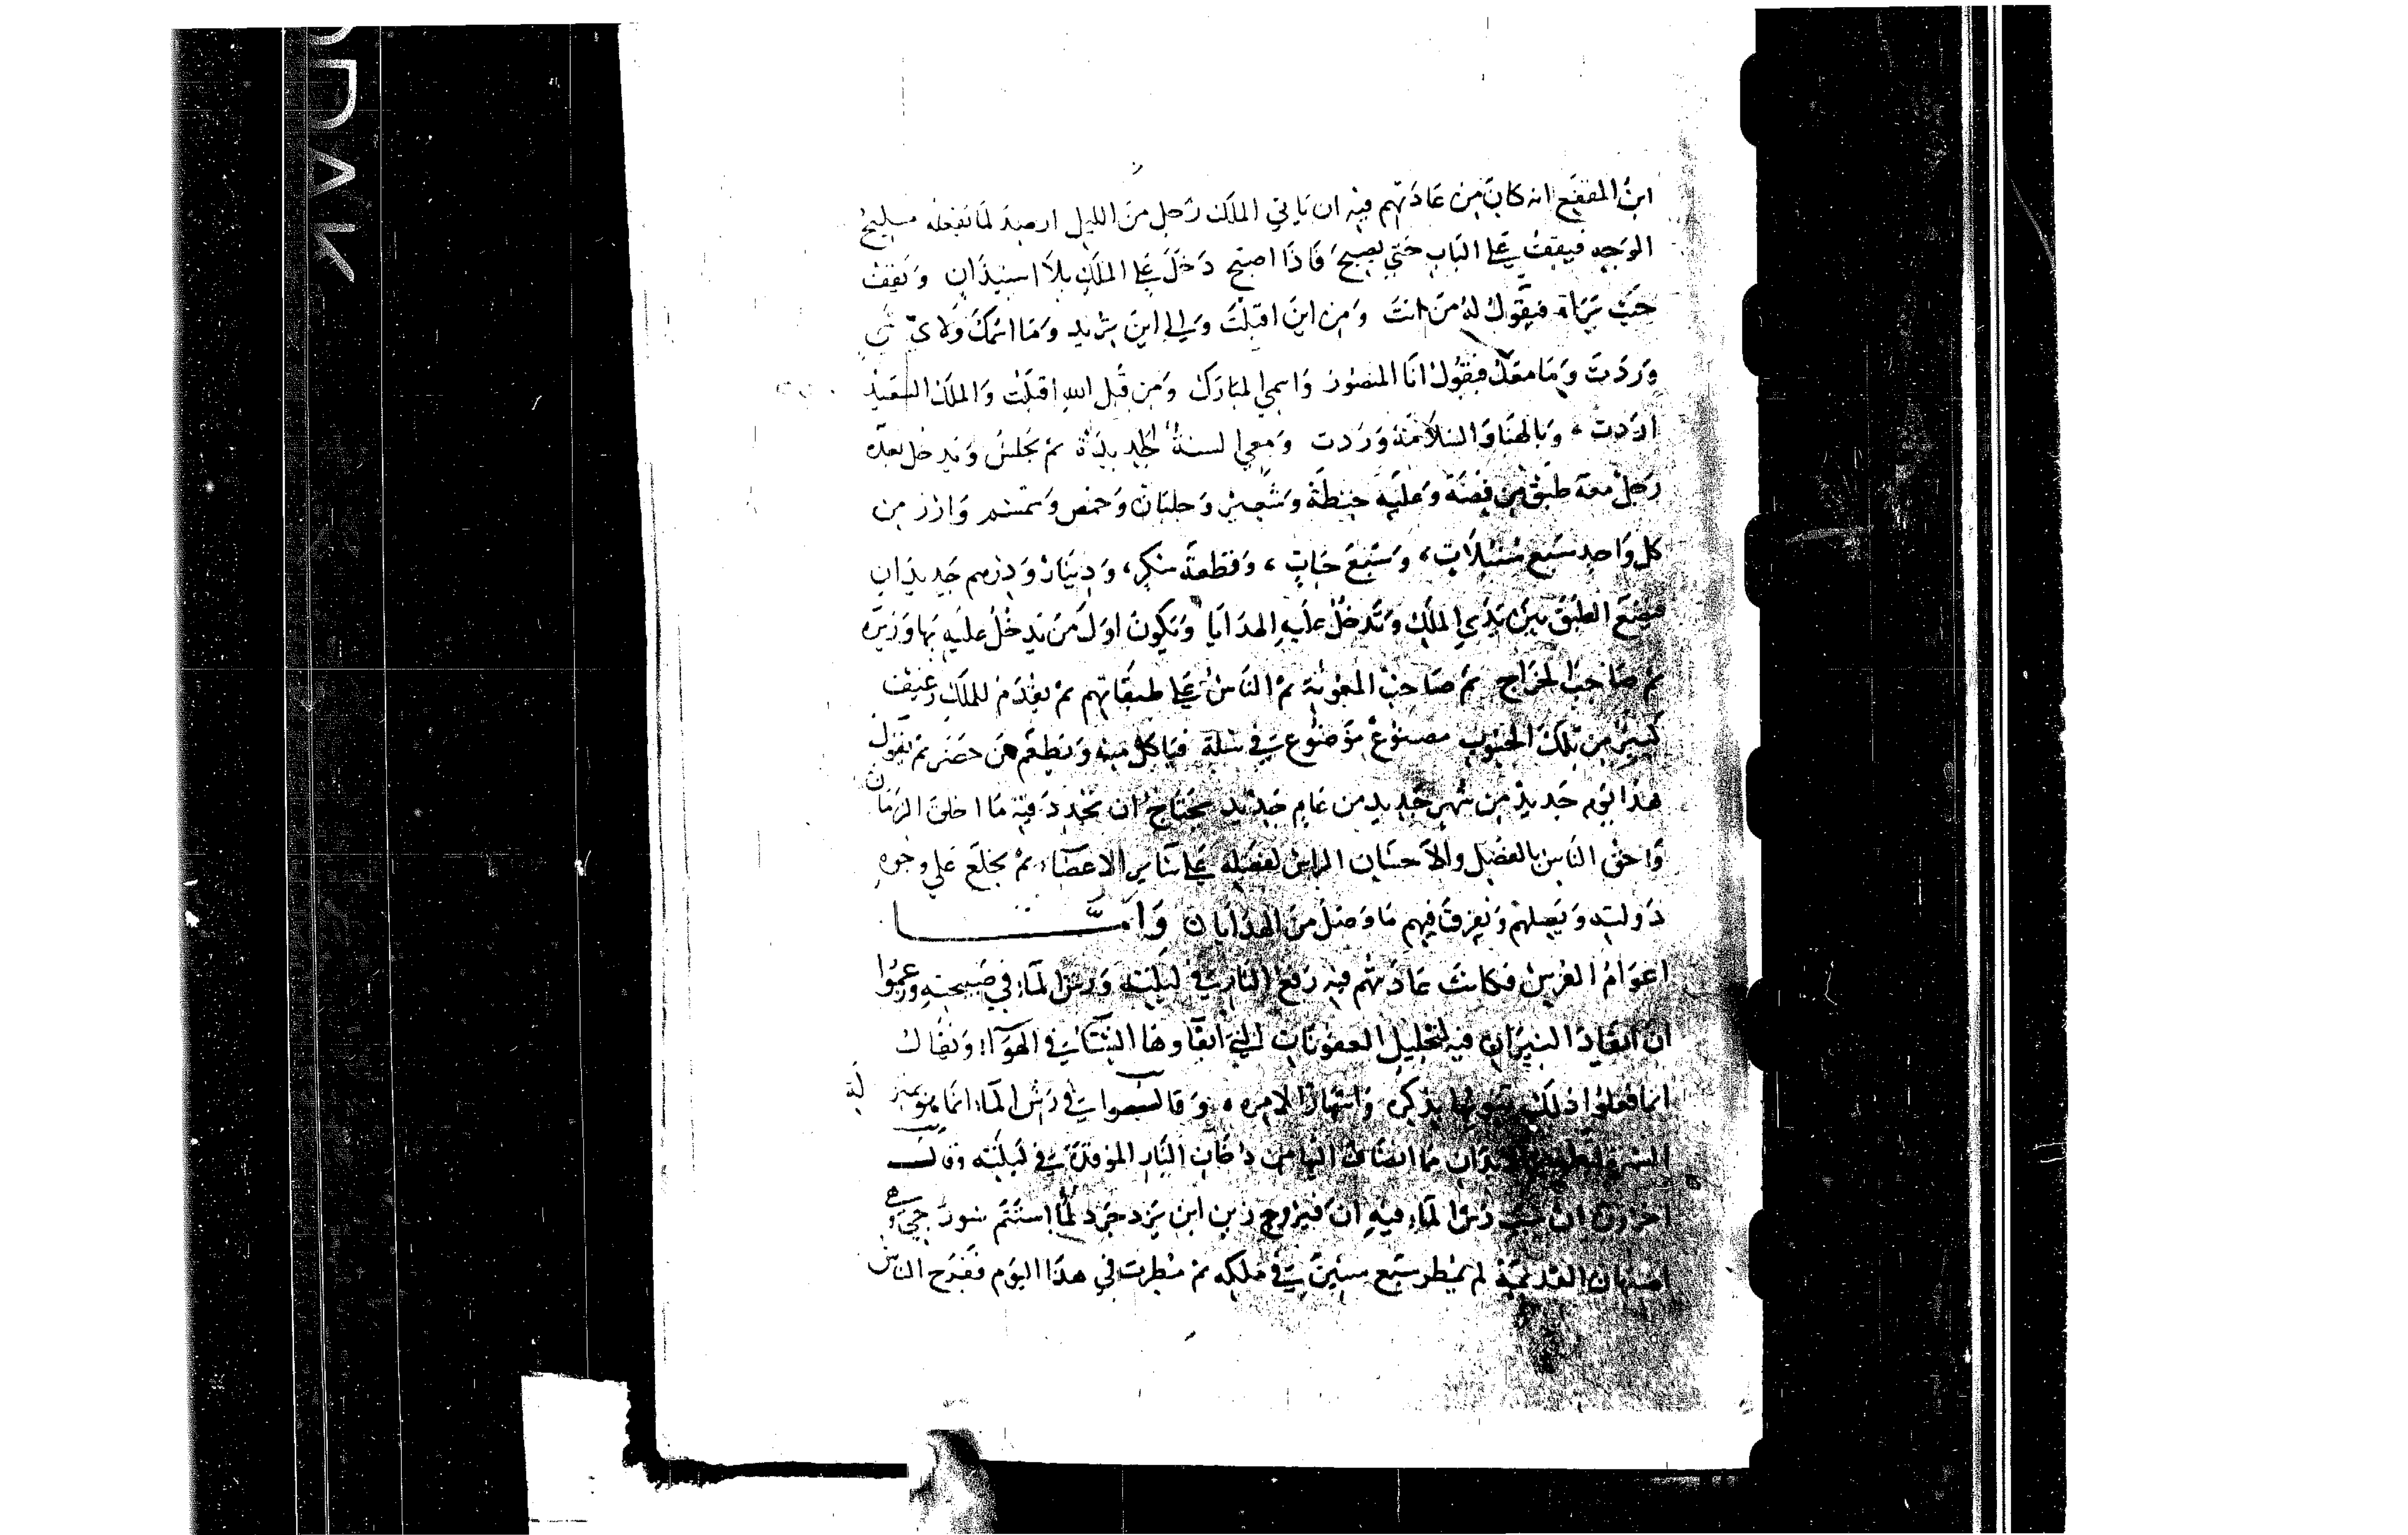 ابن المقفع انه كان من عادتهم فيه ان ياتي الملك رجل من الليل ارصد لما يفعله مليح
الوجه فيقف على الباب حتى يصبح فاذا اصبح دخل على الملك بلا استيذان ويقف
حيث يراه فيقول له من انت ومن اين اقبلت والى اين تريد وما اسمك ولاي شي
وردت وما معك فيقول انا المنصور واسمي المبارك ومن قبل الله اقبلت والملك السعيد
اردت وبالهنا والسلامة وردت ومعي السنة الجديدة ثم يجلس ويدخل بعده
رجل معه طبق من فضة وعليه حنطة وشعير وجلبان وحمص وسمسم وارز من
كل واحد سبع سنبلات وسبع حبات وقطعة سكر ودينار ودرهم جديدان
فيضع الطبق بين يدي الملك وتدخل عليه الهدايا ويكون اول من يدخل عليه بها وزيره
ثم صاحب الخراج ثم صاحب المعونة ثم الناس على طبقاتهم ثم يقدم للملك رغيف
كبير من تلك الحبوب مصنوع موضوع في سلة فياكل منه ويطعم من حضر ثم يقول
هذا يوم جديد من شهر جديد من عام جديد يحتاج ان يجدد فيه ما اخلق الزمان
واحق الناس بالفضل والاحسان الراس لفضله على سائر الاعضاء ثم يخلع على وجوه
دولته ويصلهم ويفرق فيهم ما وصل من الهدايا ن واما
اعوام الفرس فكانت عادتهم فيه رفع النار في ليلته ورش الماء في صبيحته وزعموا
ان ايقاد النيران فيه لتحليل العفونات التي ابقاها الشتا في الهواء ويقال
انما فعلوا ذلك تنويها بذكره واشهارا لامره وقالوا في رش الماء انما هو بمنزلة
الشهرة لتطهير الابدان مما انضاف اليها من دخان النار الموقدة في ليلته وقال
اخرون ان سبب رش الماء فيه ان فيروج زبن ابن يزدجرد لما استتم سور جي وهي
اصبهان القديمة لم يمطر سبع سنين في ملكه ثم مطرت في هذا اليوم ففرح الناس